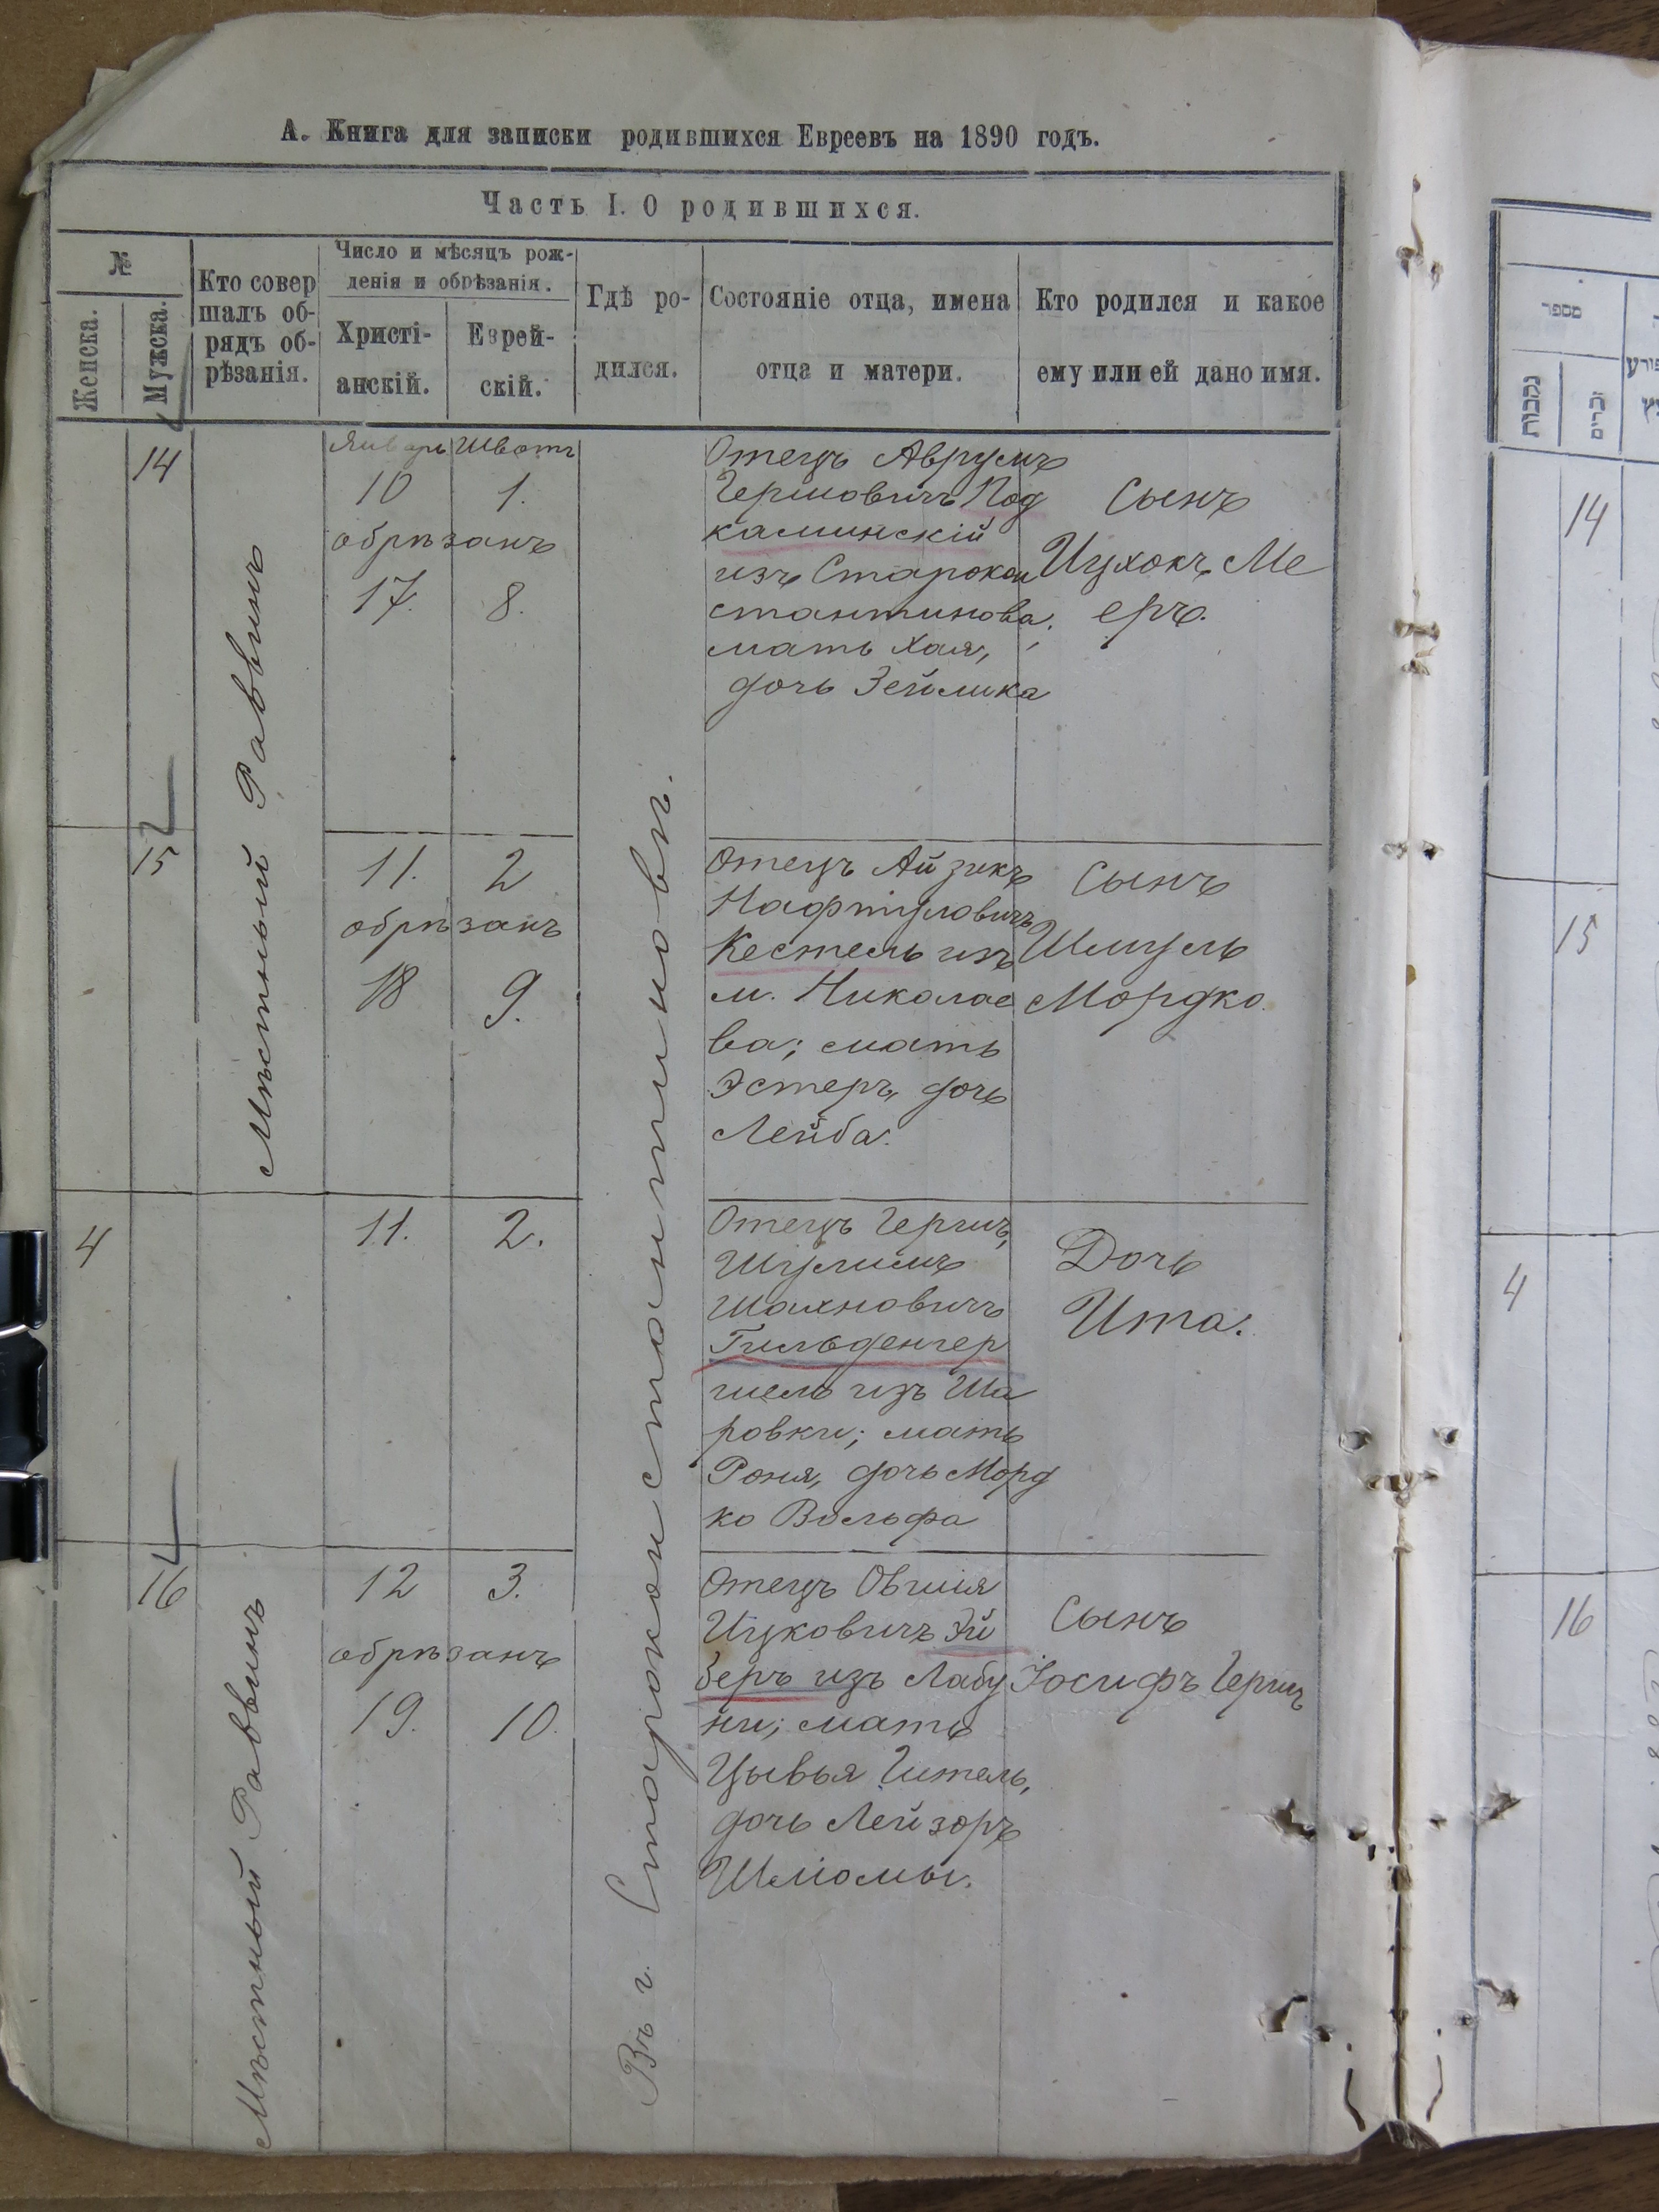 А. Книга для записки родившихся Евреевъ на 1890 годъ.
Часть I. О родившихся.
№
Женска.
Мужска.
Кто совер
шалъ об-
рядъ об-
рѣзанія.
Число и мѣсяцъ рож-
денія и обрѣзанія.
Христі-
анскій.
Еврей-
скій.
Гдѣ ро-
дился.
Состояніе отца, имена
отца и матери.
Кто родился и какое
ему или ей дано имя.
14
Мѣстный Раввинъ
Январь Шватъ
10 1.
обрѣзанъ
17. 8.
Въ г. Староконстантиновѣ.
Отецъ Аврумъ
Гершовичъ Под
каминскій
изъ Старокон
стантинова;
мать Хая,
дочь Зейлика
Сынъ
Ицхокъ Ме
еръ.
15
11. 2
обрѣзанъ
18 9.
Отецъ Айзикъ
Нафтуловичъ
Кестель изъ
м. Николае
ва; мать
Эстеръ, дочь
Лейба.
Сынъ
Шмуль
Мордко.
4
11. 2.
Отецъ Гершъ,
Шулимъ
Шахновичъ
Гильденгер
шель изъ Ша
ровки; мать
Роня, дочь Морд
ко Вольфа
Дочь
Ита.
16
Мѣстный Раввинъ
12 3.
обрѣзанъ
19. 10.
Отецъ Овшія
Ицковичъ Эй
беръ изъ Лабу
ни; мать
Цывья Гитель,
дочь Лейзоръ
Шліомы.
Сынъ
Іосифъ Гершъ
מספר
נקבות
זכרים
14
15
4
16